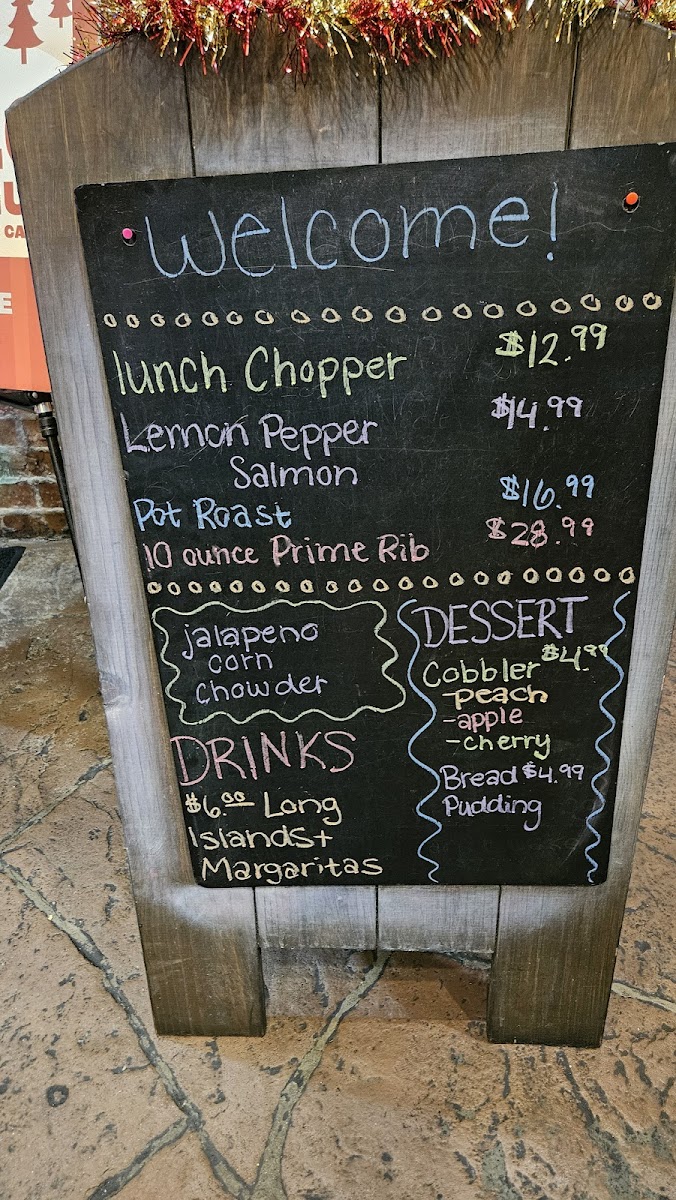 Welcome!
lunch Chopper $12.99
Lemon Pepper $14.99
Salmon
Pot Roast $16.99
10 ounce Prime Rib $28.99
jalapeno
corn
chowder
DRINKS
$6.00 Long
Islands+
Margaritas
DESSERT
Cobbler $4.99
-peach
-apple
-cherry
Bread $4.99
Pudding